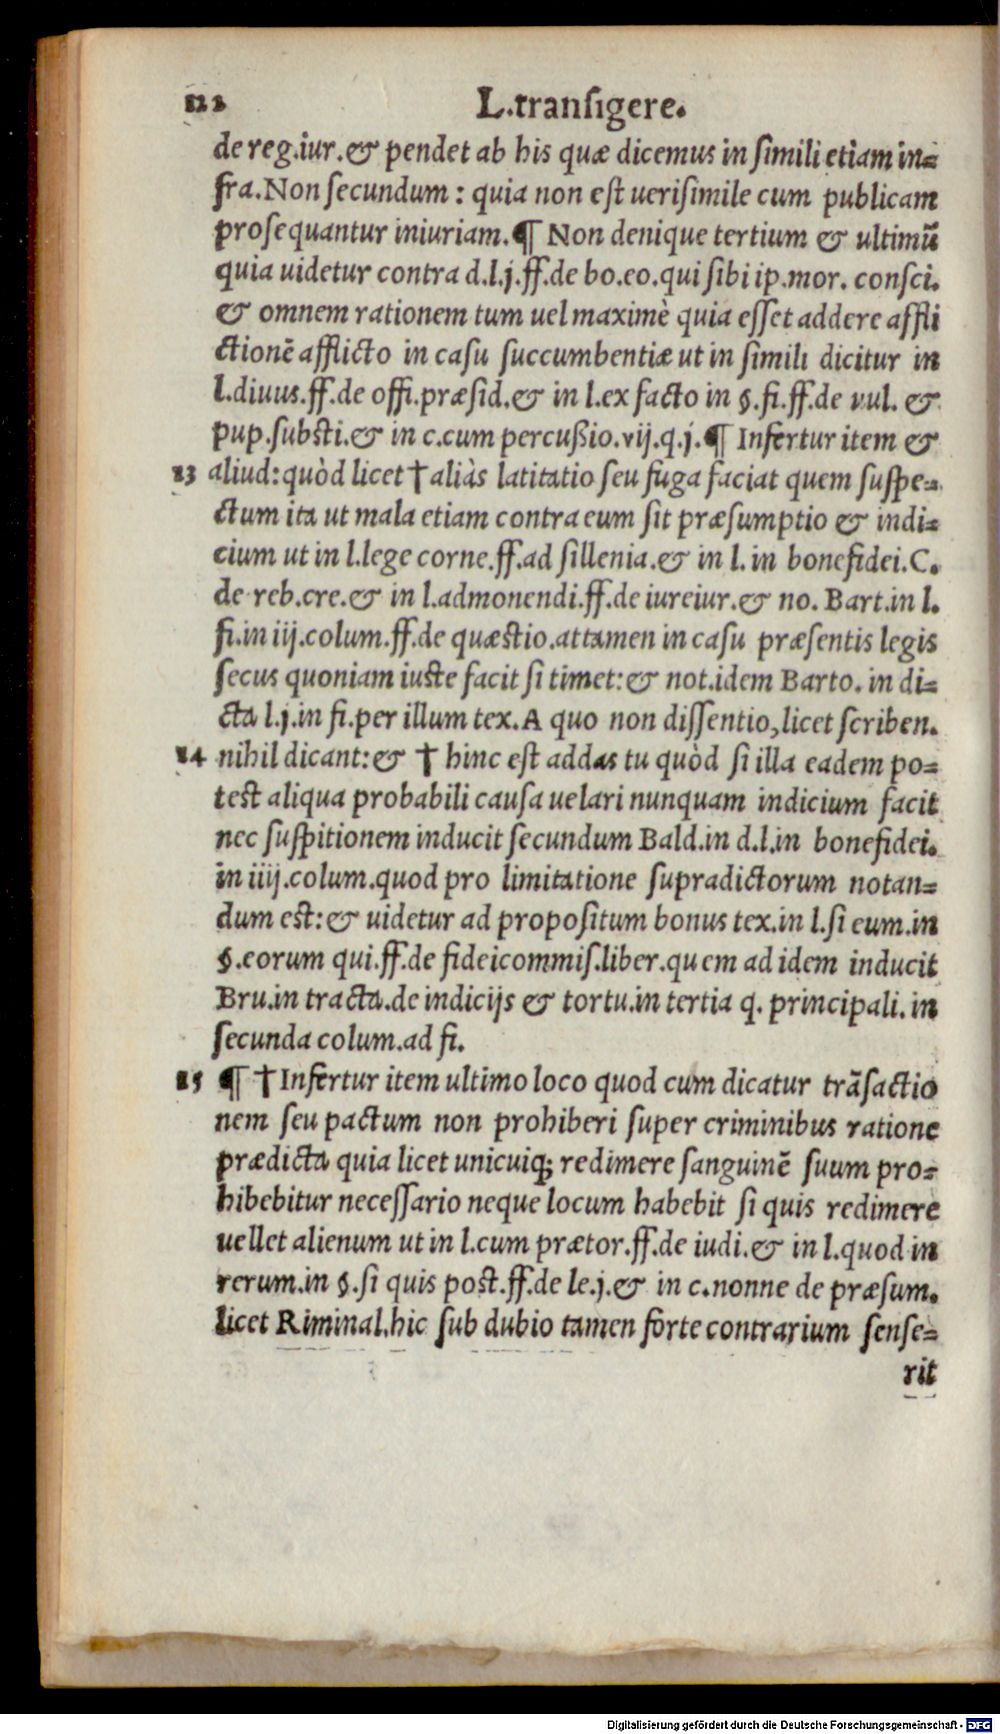 122 L.transigere.
de reg.iur.& pendet ab his quæ dicemus in ſimili etiam in=
fra.Non ſecundum : quia non eſt ueriſimile cum publicam
proſequantur iniuriam.¶ Non denique tertium & ultimū
quia uidetur contra d.l.j.ff.de bo.eo.qui ſibi ip.mor. conſci.
& omnem rationem tum uel maximè quia eſſet addere affli
ctionē afflicto in caſu ſuccumbentiæ ut in ſimili dicitur in
l.diuus.ff.de offi.præſid.& in l.ex facto in §.fi.ff.de vul. &
pup.ſubſti.& in c.cum percußio.vij.q.j.¶ Infertur item &
23 aliud:quòd licet † aliàs latitatio ſeu fuga faciat quem ſuſpe=
ctum ita ut mala etiam contra eum ſit præſumptio & indi=
cium ut in l.lege corne.ff.ad ſillenia.& in l. in bonefidei.C.
de reb.cre.& in l.admonendi.ff.de iureiur.& no. Bart.in l.
fi.in iij.colum.ff.de quæſtio.attamen in caſu præſentis legis
ſecus quoniam iuſte facit ſi timet:& not.idem Barto. in di=
cta l.j.in fi.per illum tex.A quo non diſſentio,licet ſcriben.
24 nihil dicant:& † hinc eſt addas tu quòd ſi illa eadem po=
teſt aliqua probabili cauſa uelari nunquam indicium facit
nec ſuſpitionem inducit ſecundum Bald.in d.l.in bonefidei.
in iiij.colum.quod pro limitatione ſupradictorum notan=
dum eſt:& uidetur ad propoſitum bonus tex.in l.ſi eum.in
§.eorum qui.ff.de fideicommiſ.liber.quem ad idem inducit
Bru.in tracta.de indicijs & tortu.in tertia q. principali. in
ſecunda colum.ad fi.
25 ¶ † Infertur item ultimo loco quod cum dicatur trāſactio
nem ſeu pactum non prohiberi ſuper criminibus ratione
prædicta quia licet unicuiq; redimere ſanguinē ſuum pro=
hibebitur neceſſario neque locum habebit ſi quis redimere
uellet alienum ut in l.cum prætor.ff.de iudi.& in l.quod in
rerum.in §.ſi quis poſt.ff.de le.j.& in c.nonne de præſum.
licet Riminal.hic ſub dubio tamen forte contrarium ſenſe=
rit
Digitalisierung gefördert durch die Deutsche Forschungsgemeinschaft - DFG